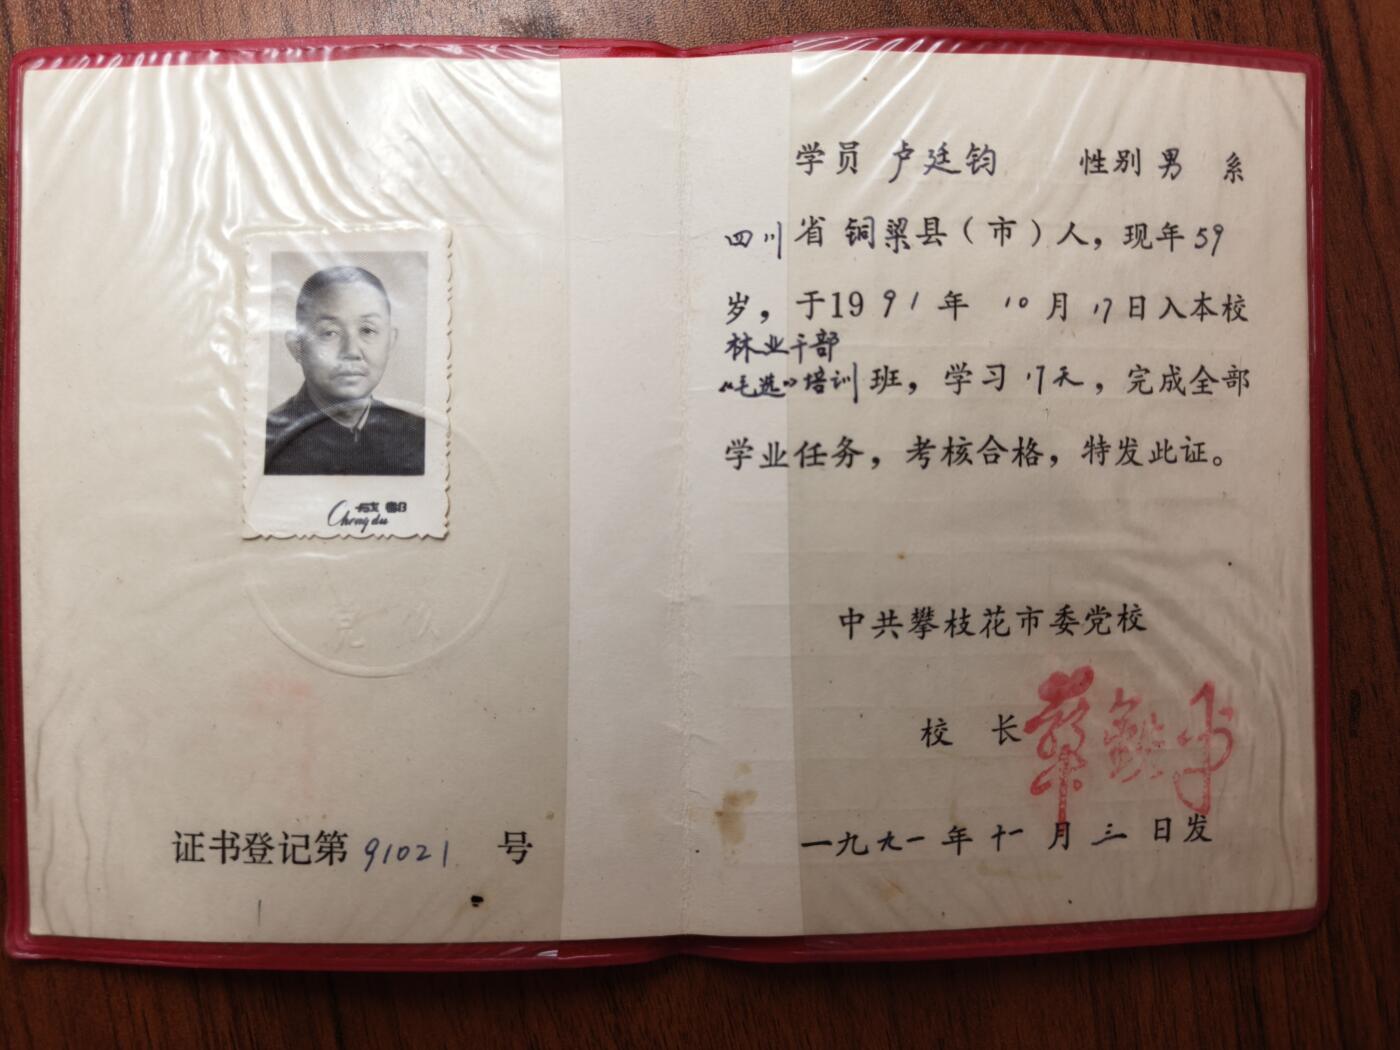 成都
Chengdu
证书登记第 91021 号
学员 卢廷钧 性别 男 系
四川省 铜梁县（市）人，现年 59
岁，于19 91 年 10 月 17 日入本校
林业干部
“毛选”培训 班，学习 17天，完成全部
学业任务，考核合格，特发此证。
中共攀枝花市委党校
校 长
一九九一年 十一 月 三 日发